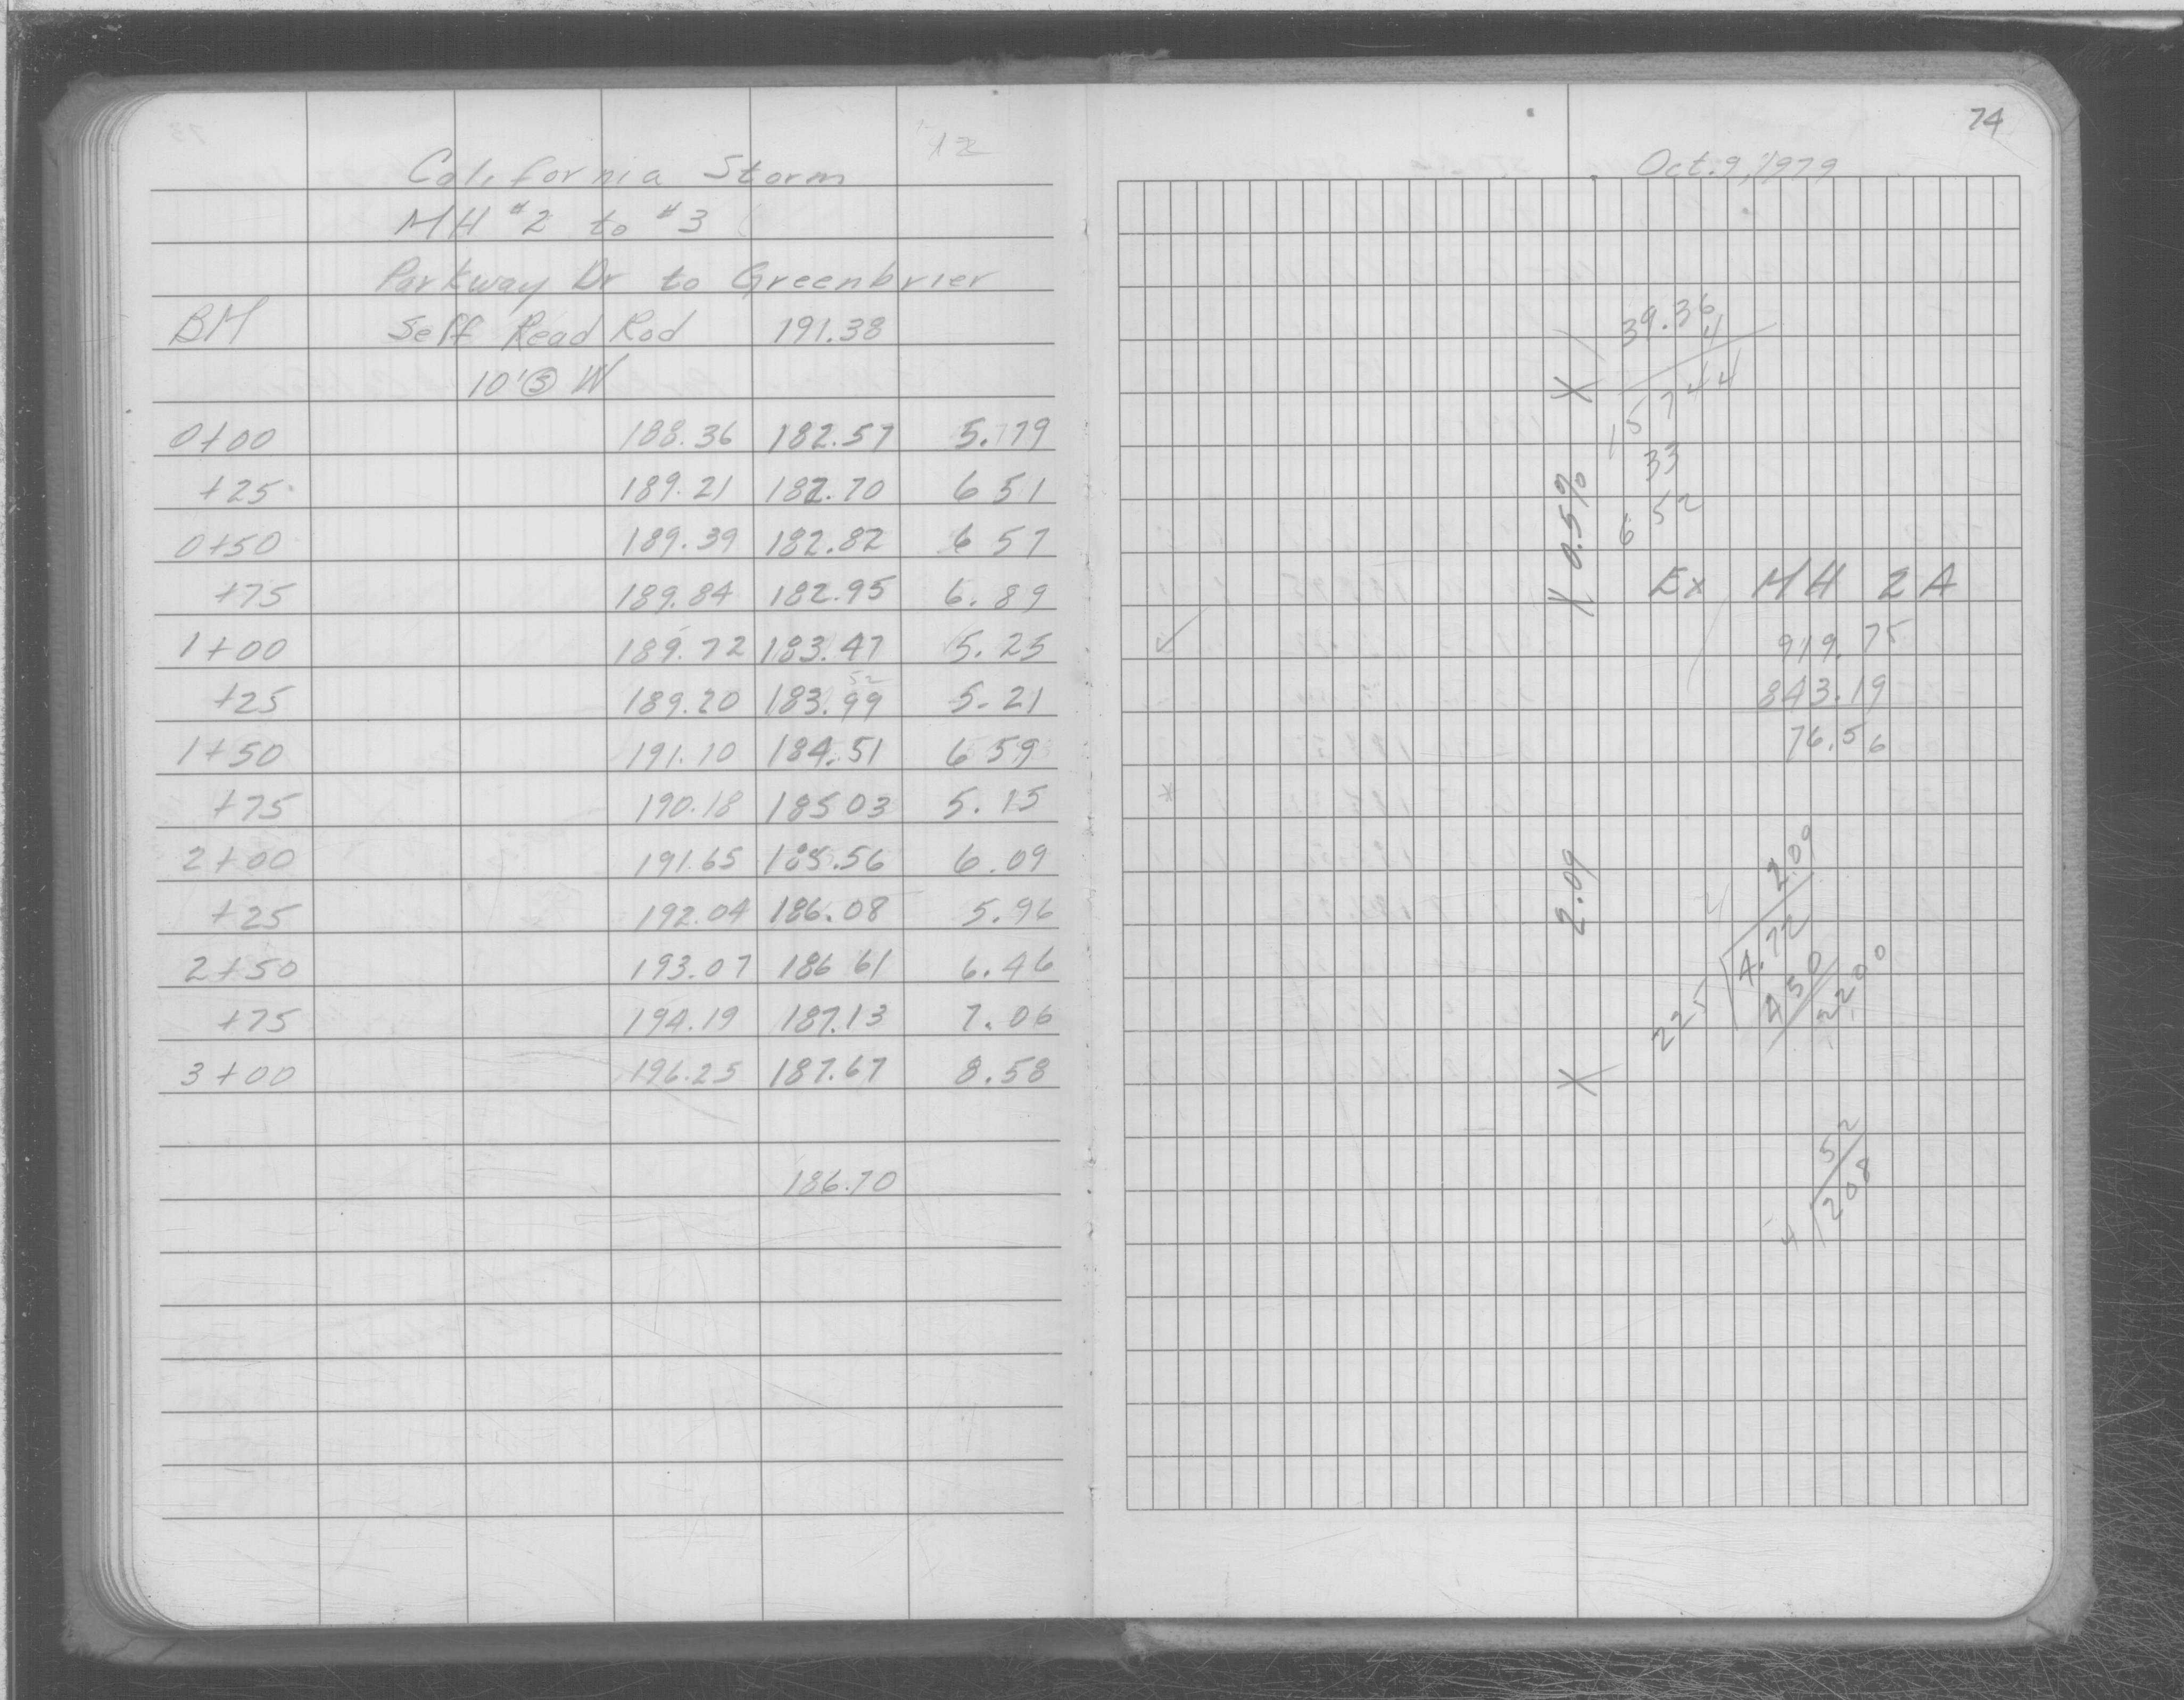 12
California Storm
MH #2 to #3
Parkway Dr to Greenbrier
BM Self Read Rod 191.38
10' Ⓢ W
0+00 188.36 182.57 5.79
+25 189.21 182.70 6 51
0+50 189.39 182.82 6 57
+75 189.84 182.95 6.89
1+00 189.72 183.47 5.25
52
+25 189.20 183.99 5.21
1+50 191.10 184.51 6 59
+75 190.18 185 03 5.15
2+00 191.65 185.56 6.09
+25 192.04 186.08 5.96
2+50 193.07 186 61 6.46
+75 194.19 187.13 7.06
3+00 196.25 187.67 8.58
186.70
74
Oct. 9, 1979
39.36
4
157 44
33
6 52
X 0.5% X
Ex MH 2A
919.75
843.19
76.56
X 2.09
2.09
225 4.72
4 50
2200
52
4 208